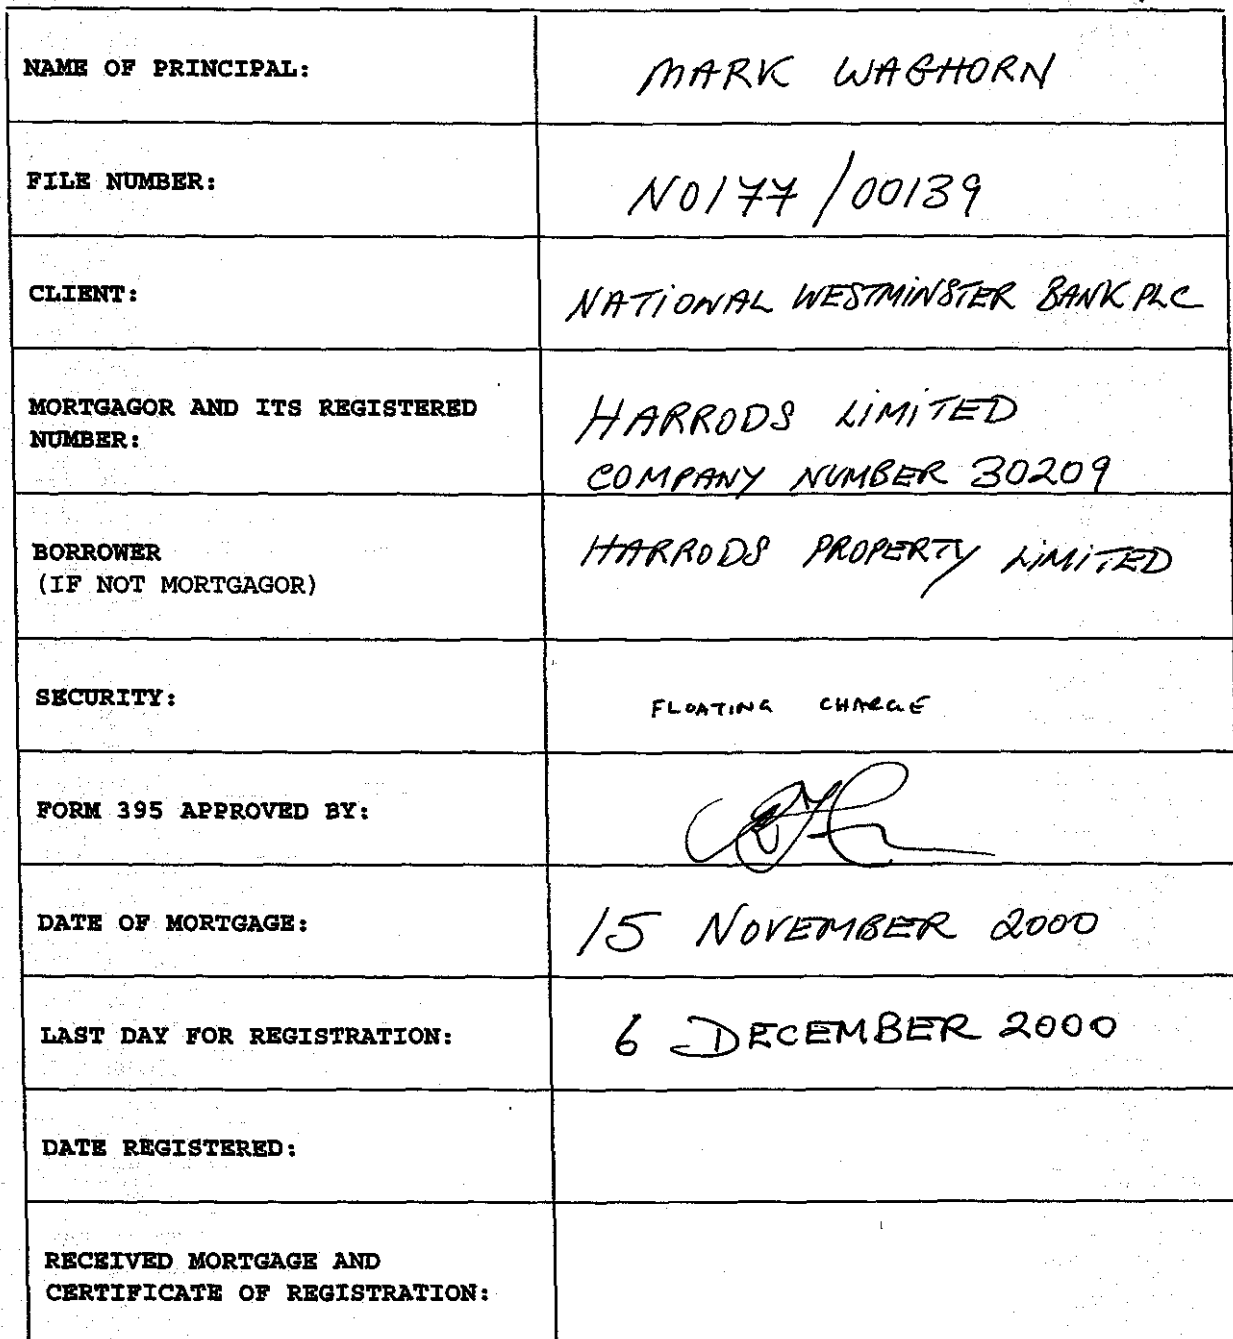 NAME OF PRINCIPAL:
MARK WAGHORN
FILE NUMBER:
N0177/00139
CLIENT:
NATIONAL WESTMINSTER BANK PLC
MORTGAGOR AND ITS REGISTERED
NUMBER:
HARRODS LIMITED
COMPANY NUMBER 30209
BORROWER
(IF NOT MORTGAGOR)
HARRODS PROPERTY LIMITED
SECURITY:
FLOATING CHARGE
FORM 395 APPROVED BY:
DATE OF MORTGAGE:
15 NOVEMBER 2000
LAST DAY FOR REGISTRATION:
6 DECEMBER 2000
DATE REGISTERED:
RECEIVED MORTGAGE AND
CERTIFICATE OF REGISTRATION: